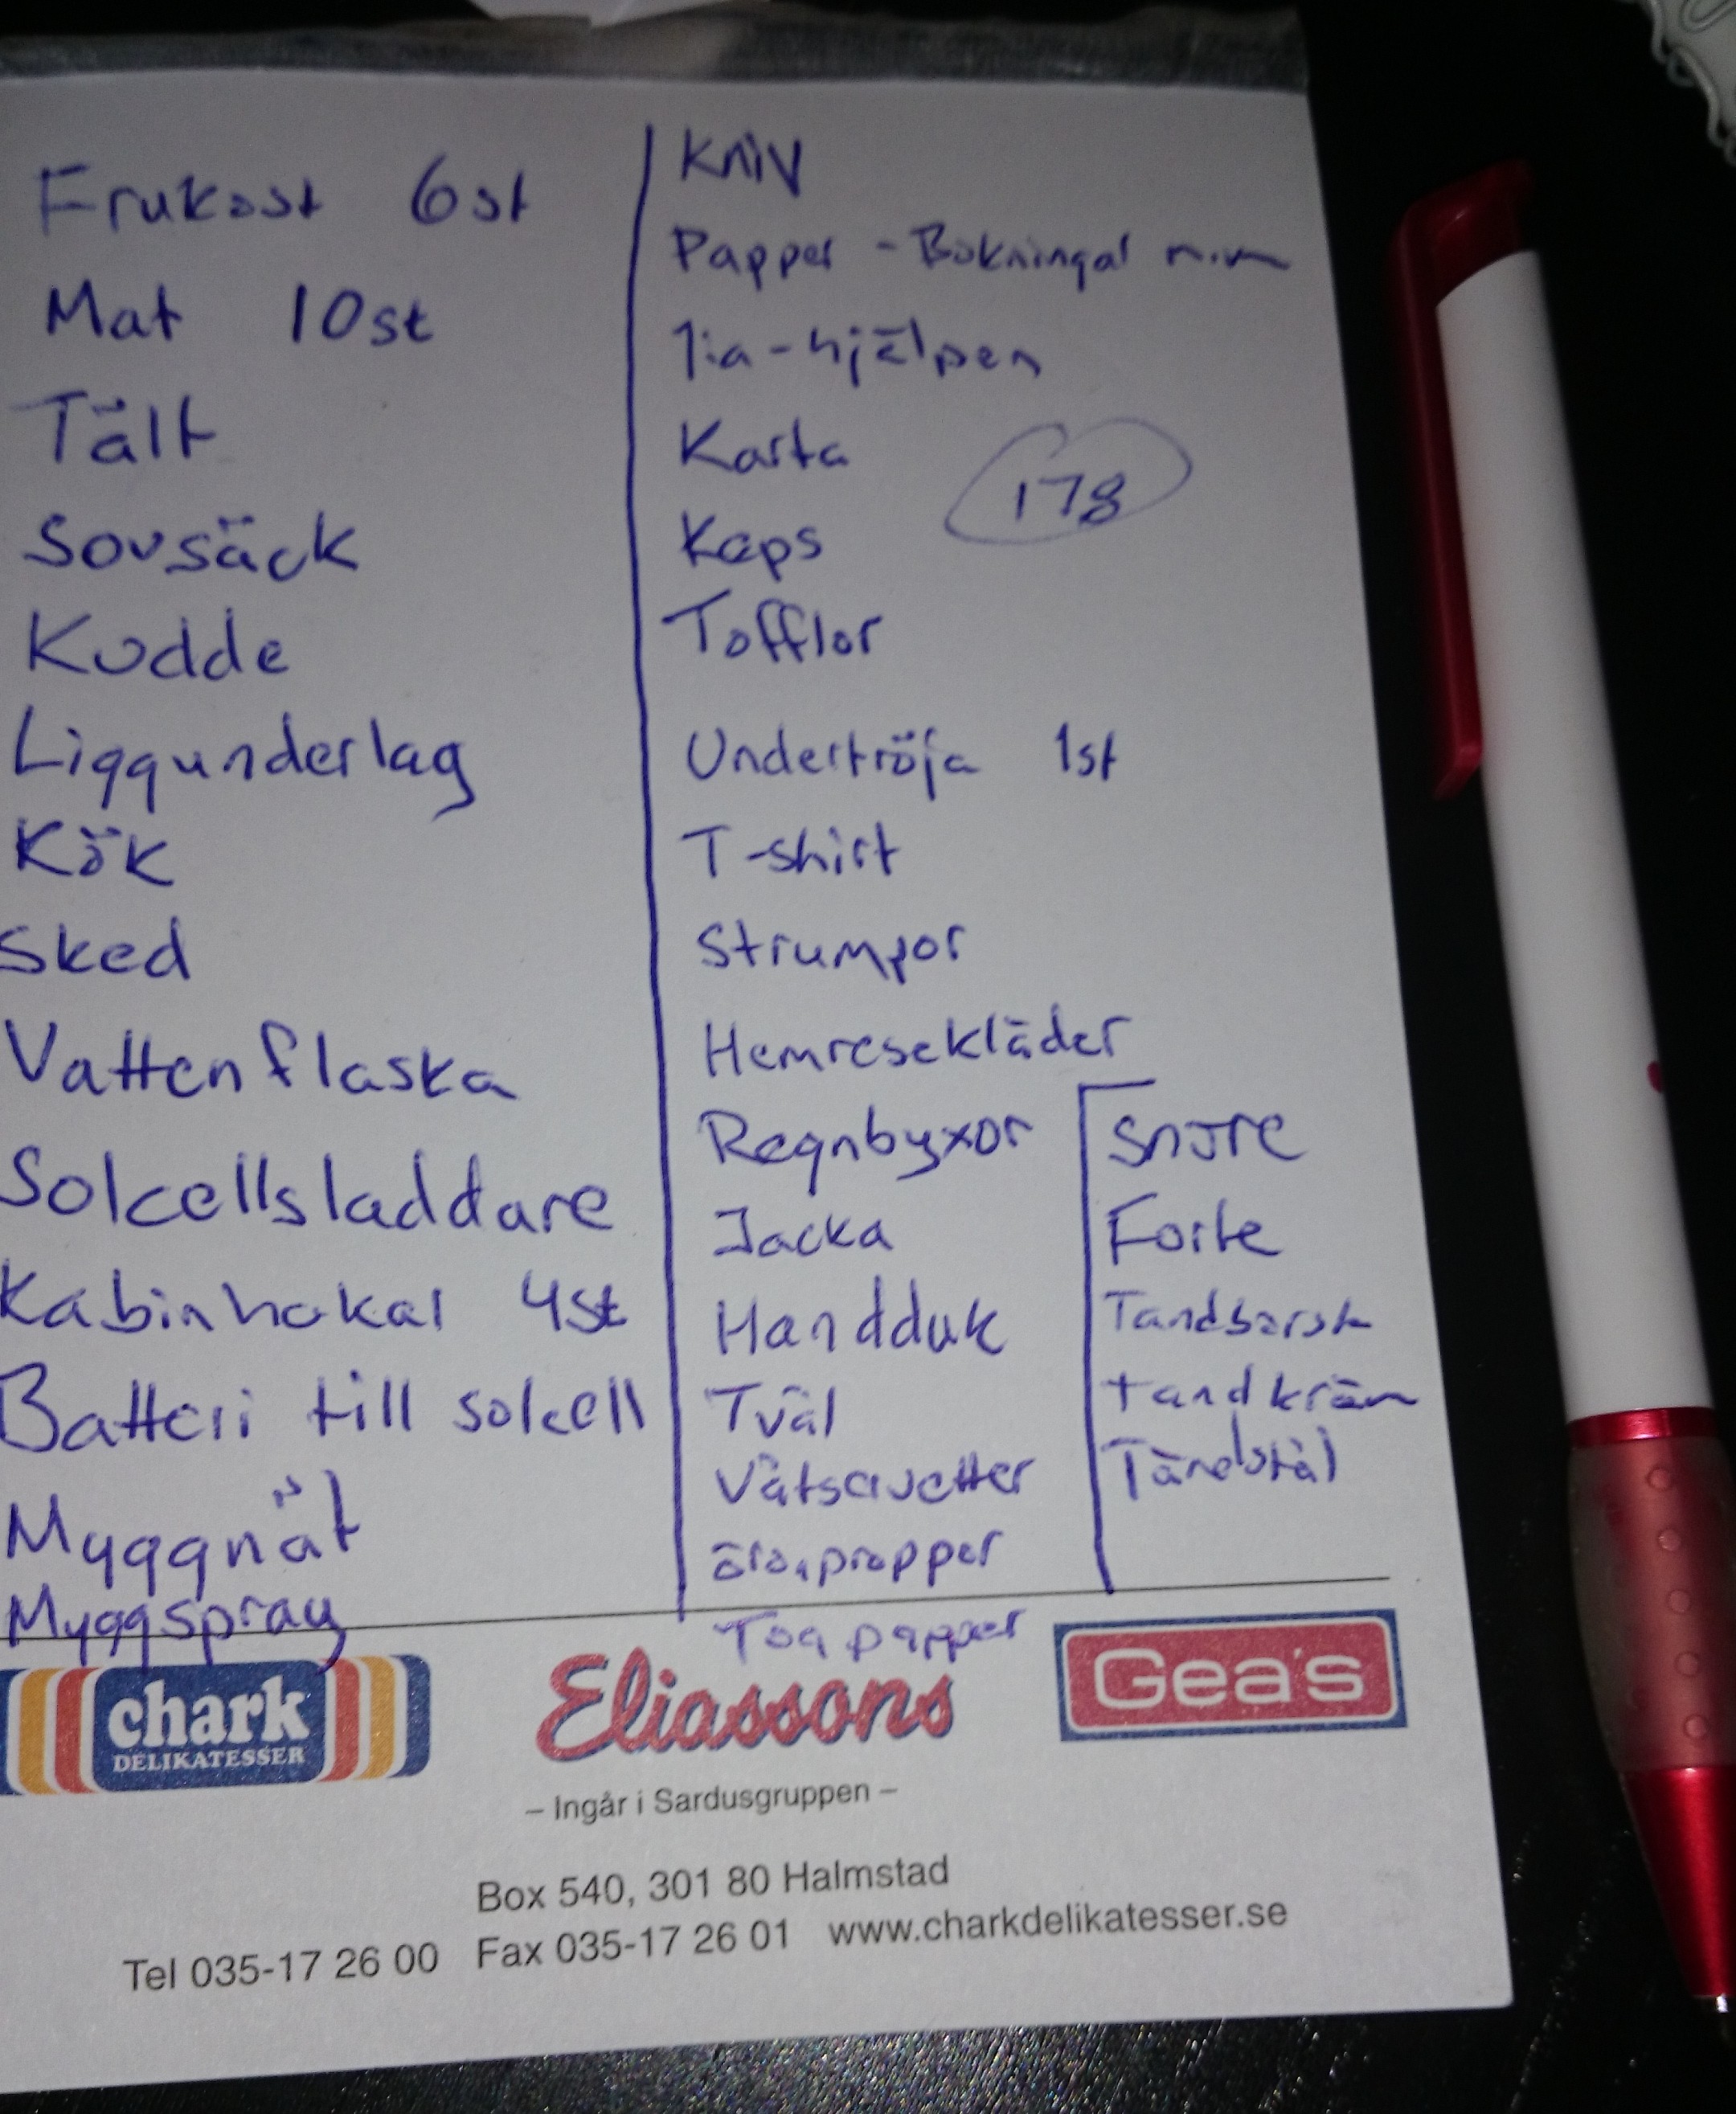 Frukost 6st
Mat 10st
Tält
Sovsäck
Kudde
Liggunderlag
Kök
Sked
Vattenflaska
Solcellsladdare
Kabinhakar 4st
Batteri till solcell
Myggnät
Myggspray
Kniv
Papper - Bokningar m.m
1:a-hjälpen
Karta
178
Keps
Tofflor
Undertröja 1st
T-shirt
Strumpor
Hemresekläder
Regnbyxor
Jacka
Handduk
Tvål
Våtservetter
öronproppar
Toapapper
Snöre
Forke
Tandborste
tandkräm
Tändstål
chark
DELIKATESSER
Eliassons
Gea's
– Ingår i Sardusgruppen –
Box 540, 301 80 Halmstad
Tel 035-17 26 00 Fax 035-17 26 01 www.charkdelikatesser.se